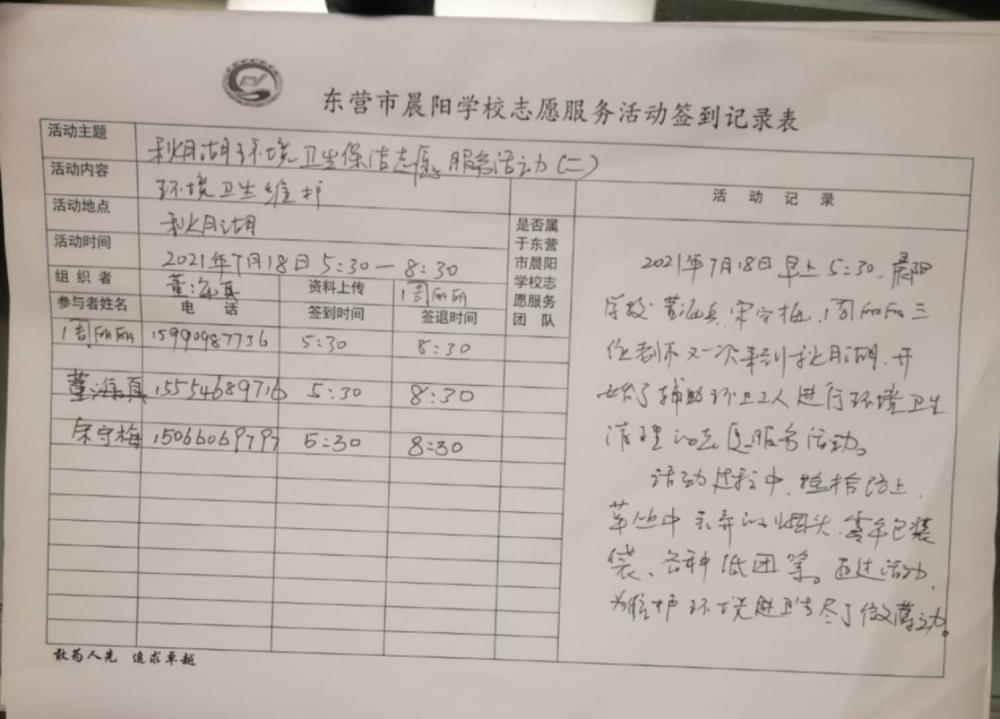 东营市晨阳学校志愿服务活动签到记录表
活动主题 秋月湖环境卫生保洁志愿服务活动(二)
活动内容 环境卫生维护
活动地点 秋月湖
活动时间 2021年7月18日5:30—8:30
组织者 董海真 资料上传 周丽丽
参与者姓名 电话 签到时间 签退时间
是否属
于东营
市晨阳
学校志
愿服务
团队
周丽丽 15990987736 5:30 8:30
董海真 15554689716 5:30 8:30
宋守梅 15066069797 5:30 8:30
活动记录
2021年7月18日早上5:30,晨阳
学校董海真、宋守梅、周丽丽三
位老师又一次来到秋月湖,开
始了辅助环卫工人进行环境卫生
清理的志愿服务活动。
活动过程中,捡拾路上、
草丛中丢弃的烟头、零食包装
袋、各种纸团等。通过活动,
为维护环境卫生尽了微薄之力。
敢为人先 追求卓越